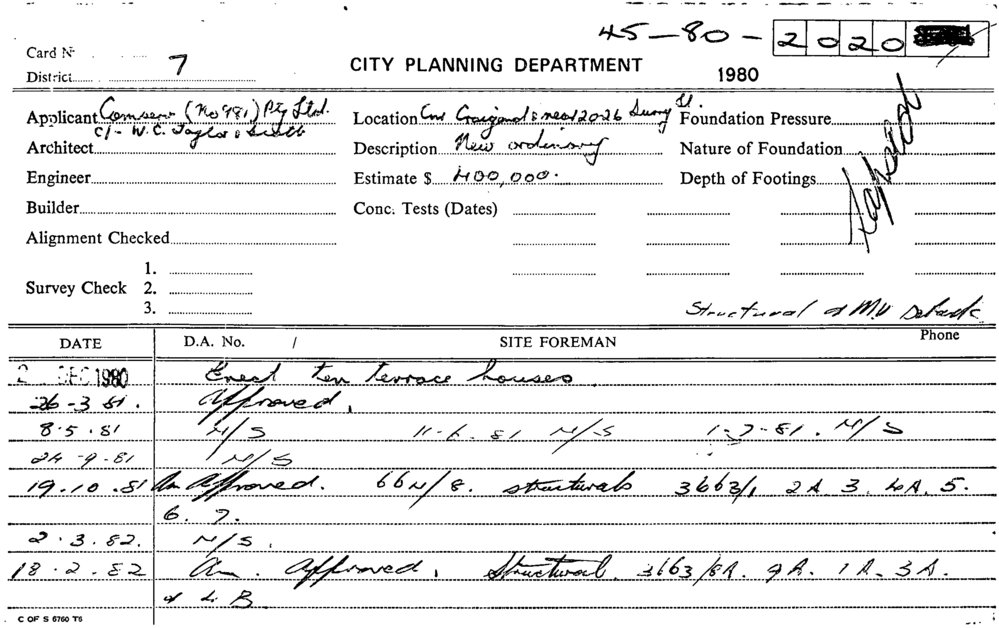 45-80-2020
Card No
District 7
CITY PLANNING DEPARTMENT 1980
Applicant Comserv (No 981) Pty Ltd.
c/- W.C. Taylor & Scott
Location Cnr Craigend & near 20-26 Surry St.
Foundation Pressure
Architect
Description New ordinary
Nature of Foundation
Engineer
Estimate $ 400,000.
Depth of Footings
Builder
Conc. Tests (Dates)
Alignment Checked
1.
Survey Check 2.
3.
Structural & M.V
DATE D.A. No. / SITE FOREMAN Phone
2 DEC 1980 Erect ten terrace houses.
26-3 81. Approved.
8.5.81 N/S 11-6.81 N/S 1-7-81. N/S
24-9-81 N/S
19.10.81 Am Approved. 66N/8. structurals 3663/1 2A. 3. 4A. 5.
6. 7.
2.3.82. N/S.
18.2.82 Am. Approved. Structural. 3663/8A. 9A. 1A. 3A.
& L.B.
C OF S 6760 T6